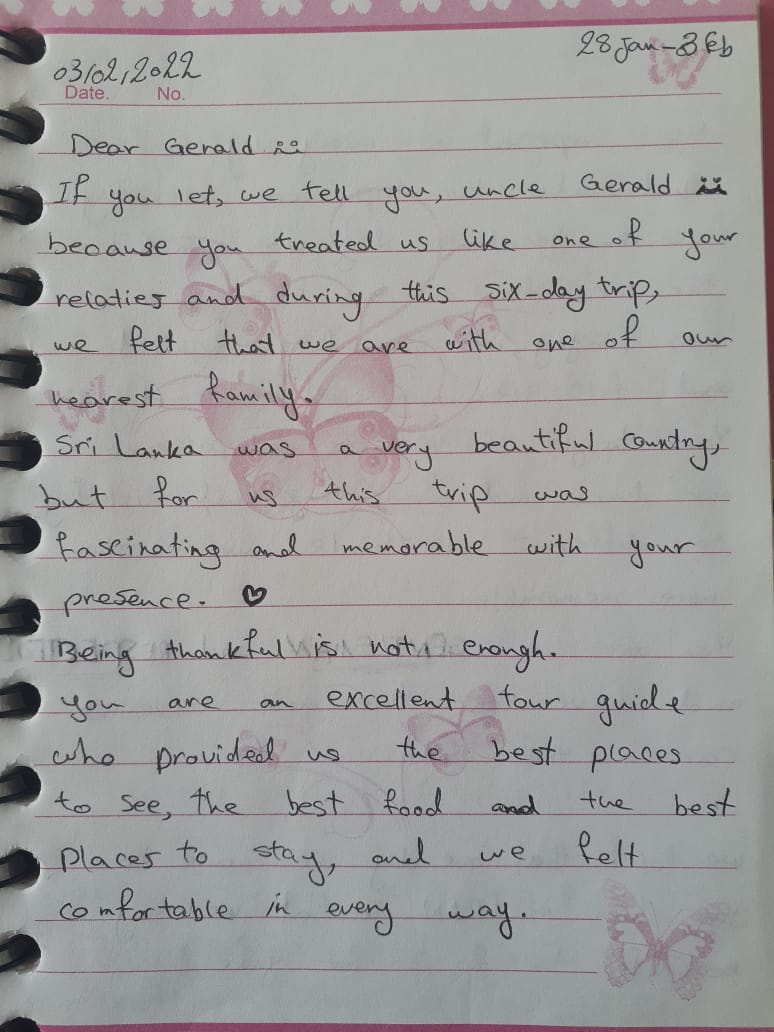 28 Jan-3 Feb
03/02/2022
Date. No.
Dear Gerald
If you let, we tell you, uncle Gerald
because you treated us like one of your
relaties and during this six-day trip,
we felt that we are with one of our
nearest family.
Sri Lanka was a very beautiful country,
but for us this trip was
fascinating and memorable with your
presence. ♡
Being thankful is not enough.
you are an excellent tour guide
who provided us the best places
to see, the best food and the best
places to stay, and we felt
comfortable in every way.